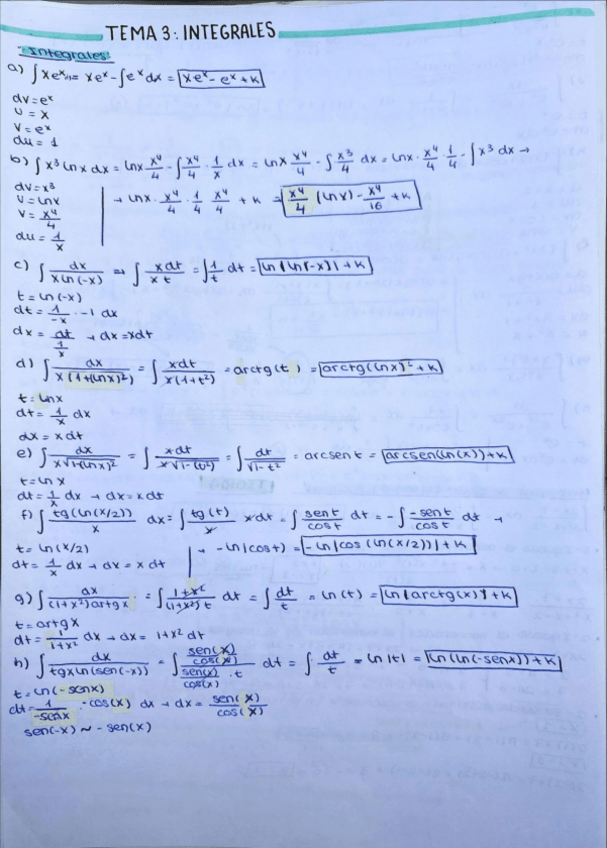 TEMA 3: INTEGRALES
Integrales:
a) ∫ x e^x = x e^x - ∫ e^x dx = x e^x - e^x + K
dv = e^x
u = x
v = e^x
du = 1
b) ∫ x³ ln x dx = ln x x⁴/4 - ∫ x⁴/4 · 1/x dx = ln x x⁴/4 - ∫ x³/4 dx = ln x · x⁴/4 · 1/4 · ∫ x³ dx →
dv = x³
v = ln x
→ ln x · x⁴/4 · 1/4 x⁴/4 + K = x⁴/4 (ln x) - x⁴/16 + K
v = x⁴/4
du = 1/x
c) ∫ dx/(x ln(-x)) = ∫ x dt/(x t) = ∫ 1/t dt = ln |ln(-x)| + K
t = ln(-x)
dt = 1/-x · -1 dx
dx = dt/(1/x) → dx = x dt
d) ∫ dx/(x(1+(ln x)²)) = ∫ x dt/(x(1+t²)) = arctg(t) = arctg(ln x) + K
t = ln x
dt = 1/x dx
dx = x dt
e) ∫ dx/(x√1-(ln x)²) = ∫ x dt/(x√1-(t²)) = ∫ dt/√1-t² = arcsen t = arcsen(ln(x)) + K
t = ln x
dt = 1/x dx → dx = x dt
f) ∫ tg(ln(x/2))/x dx = ∫ tg(t)/x x dt = ∫ sen t/cos t dt = - ∫ -sen t/cos t dt →
t = ln(x/2)
→ -ln|cos t) = -ln|cos (ln(x/2))| + K
dt = 1/x dx → dx = x dt
g) ∫ dx/((1+x²) artg x) = ∫ 1+x²/((1+x²) t) dt = ∫ dt/t = ln(t) = ln|arctg(x)| + K
t = artg x
dt = 1/(1+x²) dx → dx = 1+x² dt
h) ∫ dx/(tg x ln(sen(-x))) = ∫ (sen(x)/cos(x))/(sen(x)/cos(x) · t) dt = ∫ dt/t = ln |t| = ln(ln(-sen x)) + K
t = ln(-sen x)
dt = 1/-sen x · -cos(x) dx → dx = sen(x)/cos(x)
sen(-x) ~ -sen(x)